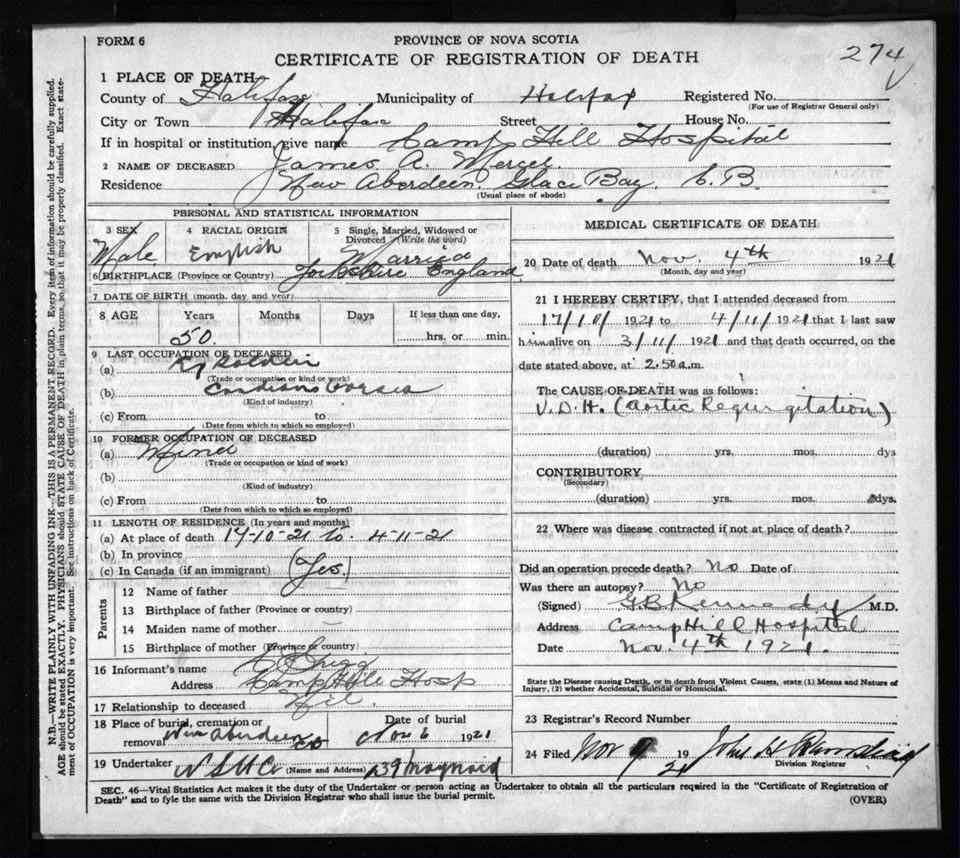 FORM 6
PROVINCE OF NOVA SCOTIA
CERTIFICATE OF REGISTRATION OF DEATH
274
1 PLACE OF DEATH
County of Halifax Municipality of Halifax Registered No.
(For use of Registrar General only)
City or Town Halifax Street House No.
If in hospital or institution, give name Camp Hill Hospital
2 NAME OF DECEASED James A. Mercer.
Residence New Aberdeen. Glace Bay. C.B.
(Usual place of abode)
PERSONAL AND STATISTICAL INFORMATION
3 SEX 4 RACIAL ORIGIN 5 Single, Married, Widowed or Divorced (Write the word)
Male English Married
6 BIRTHPLACE (Province or Country) Yorkshire England
7 DATE OF BIRTH (month, day and year)
8 AGE Years Months Days If less than one day,
50. hrs. or min.
9 LAST OCCUPATION OF DECEASED
(a) Soldier
(Trade or occupation or kind or work)
(b) Canadians
(Kind of industry)
(c) From to
(Date from which to which so employed)
10 FORMER OCCUPATION OF DECEASED
(a) Miner
(Trade or occupation or kind of work)
(b)
(Kind of industry)
(c) From to
(Date from which to which so employed)
11 LENGTH OF RESIDENCE (In years and months)
(a) At place of death 17-10-21 to. 4-11-21
(b) In province
(c) In Canada (if an immigrant) (Yes.)
Parents
12 Name of father
13 Birthplace of father (Province or country)
14 Maiden name of mother
15 Birthplace of mother (Province or country)
16 Informant's name
Address Camp Hill Hosp
17 Relationship to deceased Nil
18 Place of burial, cremation or removal New Aberdeen CB Date of burial Nov 6 1921
19 Undertaker N S U Co (Name and Address) 239 Maynard
MEDICAL CERTIFICATE OF DEATH
20 Date of death Nov. 4th 1921
(Month, day and year)
21 I HEREBY CERTIFY, that I attended deceased from
17/10/ 1921 to 4/11/ 1921 that I last saw
him alive on 3/11/ 1921 and that death occurred, on the
date stated above, at 2.50 a.m.
The CAUSE OF DEATH was as follows:
V.D.H. (Aortic Regurgitation)
(duration) yrs. mos. dys
CONTRIBUTORY
(Secondary)
(duration) yrs. mos. dys.
22 Where was disease contracted if not at place of death?
Did an operation precede death? No Date of
Was there an autopsy? No
(Signed) G.B. Kennedy M.D.
Address Camp Hill Hospital
Date Nov. 4th 1921.
State the Disease causing Death, or in death from Violent Causes, state (1) Means and Nature of
Injury, (2) whether Accidental, Suicidal or Homicidal.
23 Registrar's Record Number
24 Filed Nov 9 1921 John H
Division Registrar
SEC. 46—Vital Statistics Act makes it the duty of the Undertaker or person acting as Undertaker to obtain all the particulars required in the "Certificate of Registration of
Death" and to fyle the same with the Division Registrar who shall issue the burial permit.
(OVER)
N.B.—WRITE PLAINLY WITH UNFADING INK—THIS IS A PERMANENT RECORD. Every item of information should be carefully supplied.
AGE should be stated EXACTLY. PHYSICIANS should STATE CAUSE OF DEATH in plain terms, so that it may be properly classified. Exact state-
ment of OCCUPATION is very important. See instructions on back of Certificate.